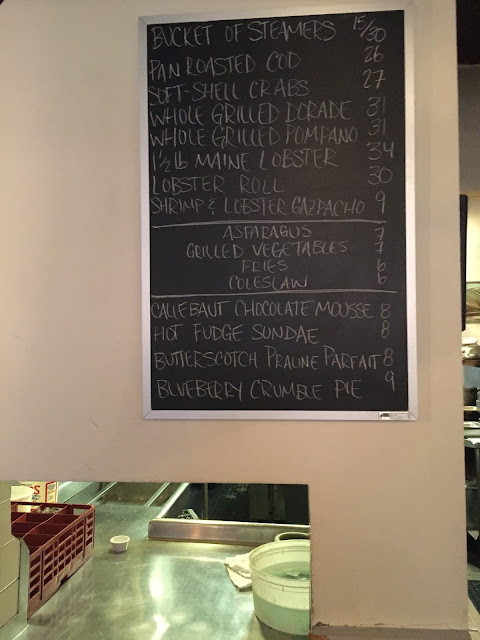 BUCKET OF STEAMERS 15/30
PAN ROASTED COD 26
SOFT-SHELL CRABS 27
WHOLE GRILLED DORADE 31
WHOLE GRILLED POMPANO 31
1 1/2 lb MAINE LOBSTER 34
LOBSTER ROLL 30
SHRIMP & LOBSTER GAZPACHO 9
ASPARAGUS 7
GRILLED VEGETABLES 7
FRIES 6
COLESLAW 6
CALLEBAUT CHOCOLATE MOUSSE 8
HOT FUDGE SUNDAE 8
BUTTERSCOTCH PRALINE PARFAIT 8
BLUEBERRY CRUMBLE PIE 9